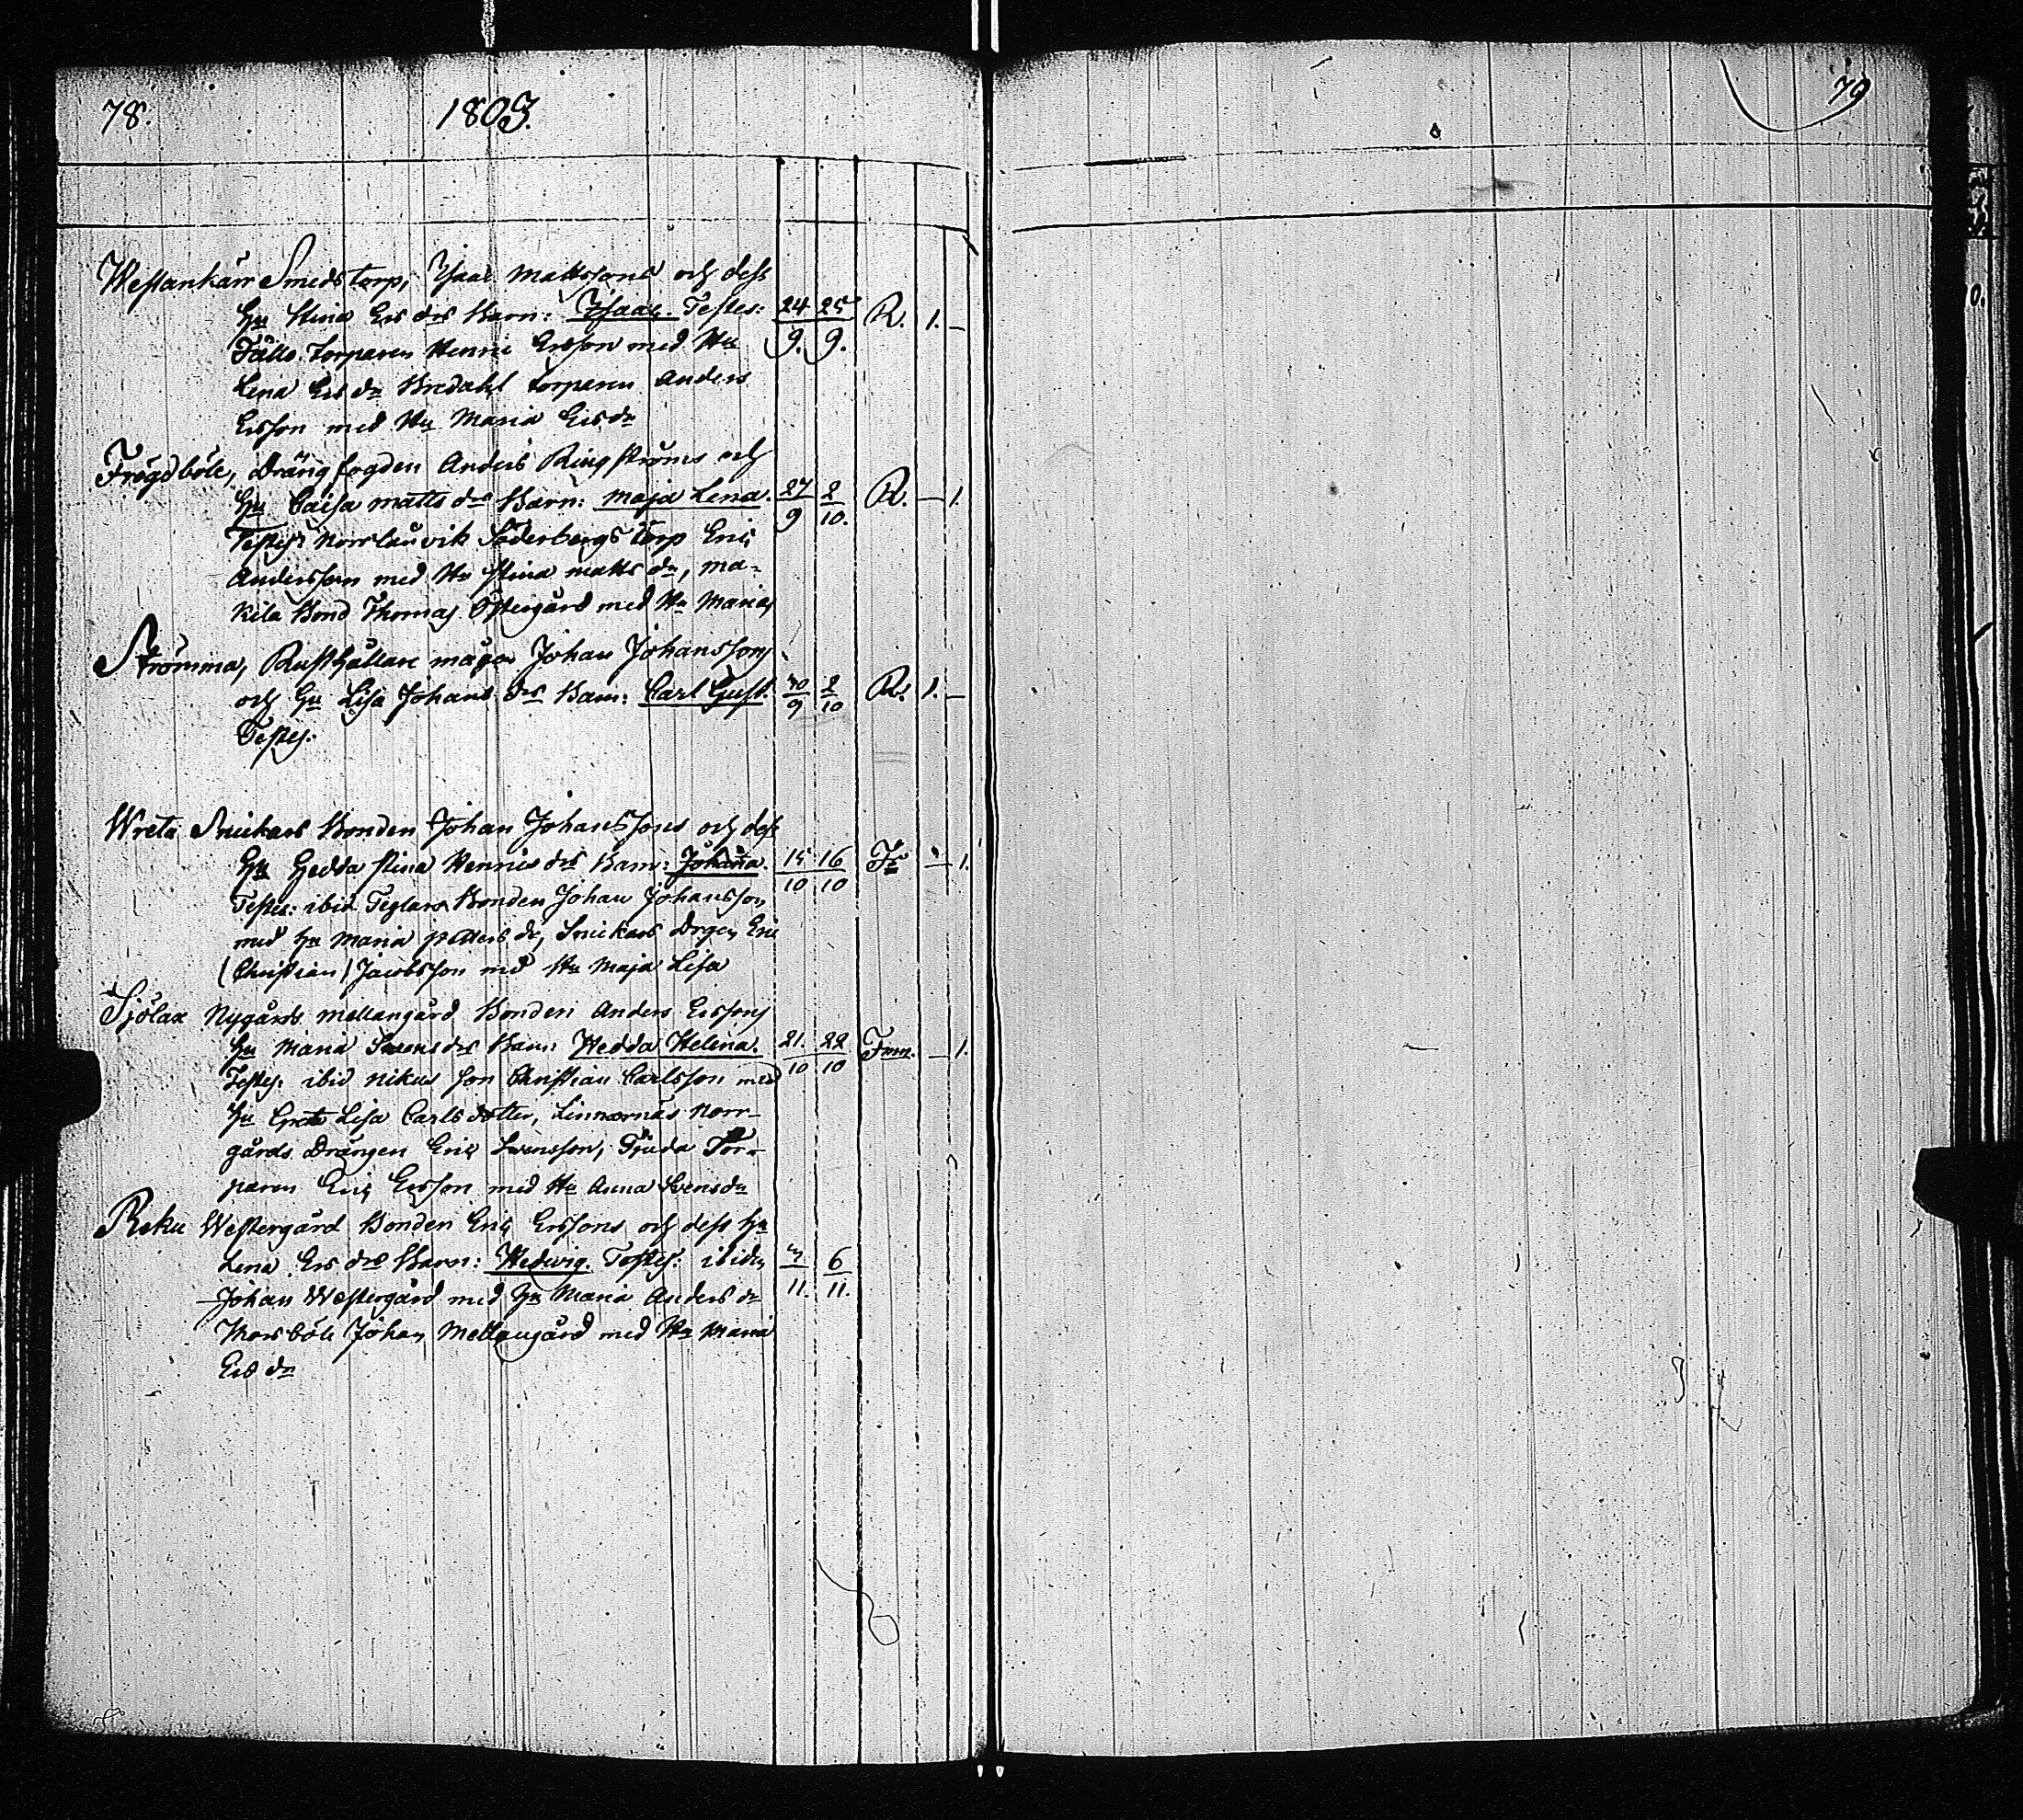 78. 1803. 79
Westankärr Smedstorp, Isaac Mattssons och dess
Hu Stina Ers drs Barn: Isaac. Testes: 24/9. 25/9. R. 1. —
Fälts. Torparen Henric Ersson med Hu
Lena Ers dr Bredahl torparen Anders
Ersson med Hu Maria Ersdr
Frögdböle, Drängfogden Anders Ringströms och
Hu Caisa Matts drs Barn: Maja Lena. 27/9 2/10. R. — 1.
Testes: Norrlaŭvik Söderbergs torp Eric
Andersson med Hu Stina Matts dr, Ma-
kila Bond Thomas Östergård med Hu Maria
Strömma, Rusthållare mågen Johan Johanssons
och Hu Lisa Johans drs Barn: Carl Gust. 30/9 2/10 R. 1. —
Testes:
Wreta Snickars Bonden Johan Johanssons och dess
Hu Hedda Stina Henrics drs Barn: Johanna. 15/10 16/10 Fr — 1.
Testes: ibid Teglars Bonden Johan Johansson
med Hu Maria petters dr, Snickars Drgen Eric
(Christian) Jacobsson med Hu Maja Lisa
Sjölax Nygårds mellangård Bonden Anders Erssons
Hu Maria Svens drs Barn: Hedda Helena. 21./10 22/10 Fmm. — 1.
Testes: ibid nikus son Christian Carlsson med
Hu Greta Lisa Carls dotter, Linnarnäs Norr-
gårds Drängen Eric Svensson, Tjuda Tor-
paren Eric Ersson med Hu Anna Svensdr
Reku Westergård Bonden Eric Erssons och dess Hu
Lena Ers drs Barn: Hedwig. Testes: ibidm 3/11. 6/11.
Johan Westergård med Hu Maria Anders dr
Thorsböle Johan Mellangård med Hu Maria
Ers dr